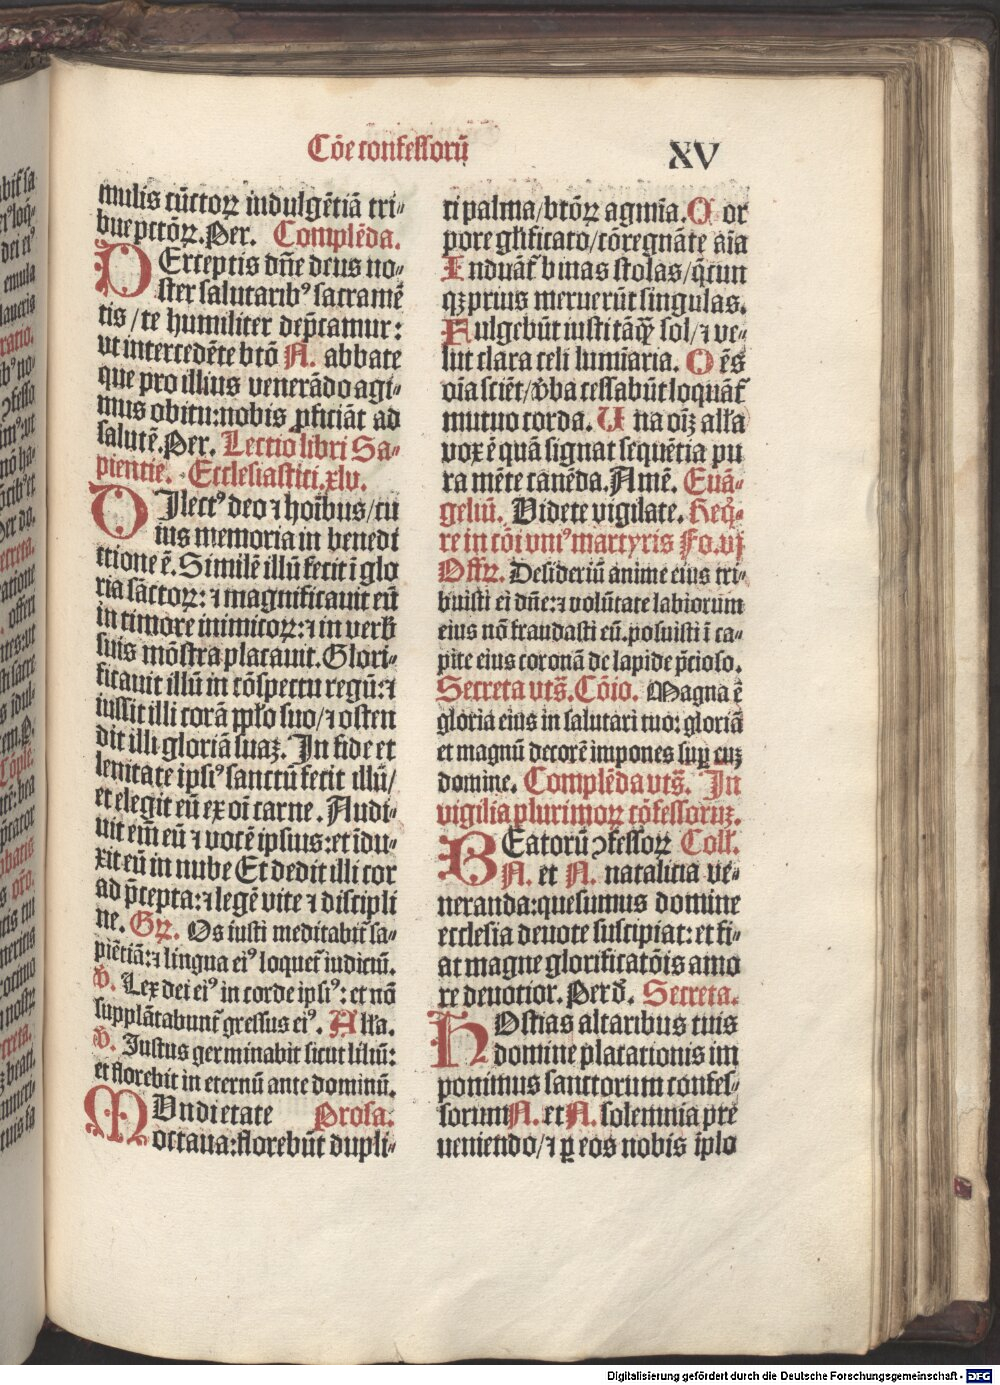 Cōe confessorū
XV
mulis cūctoꝝ indulgētiā tri⸗
bue pctōꝝ. Per. Complēda.
PErceptis dn̄e deus no⸗
ster salutaribꝰ sacramē
tis / te humiliter dep̄camur:
vt intercedēte btō N. abbate
que pro illius venerādo agi⸗
mus obitu: nobis ꝓficiāt ad
salutē. Per. Lectio libri Sa⸗
pientie. Ecclesiastici. xlv.
DIlectꝰ deo ⁊ hoībus / cu
ius memoria in benedi
ctione ē. Similē illū fecit ī glo
ria sāctoꝝ: ⁊ magnificauit eū
in timore inimicoꝝ: ⁊ in verb̄
suis mōstra placauit. Glori⸗
ficauit illū in cōspectu regū: ⁊
iussit illi corā pplo suo / ⁊ osten
dit illi gloriā suaꝫ. In fide et
lenitate ipsiꝰ sanctū fecit illū /
et elegit eū ex oī carne. Audi⸗
uit em̄ eū ⁊ vocē ipsius: et īdu⸗
xit eū in nube Et dedit illi cor
ad p̄cepta: ⁊ legē vite ⁊ discipli
ne. Gꝝ. Os iusti meditabit̄ sa⸗
piētiā: ⁊ lingua eiꝰ loquet̄ iudiciū.
V̄. Lex dei eiꝰ in corde ipsiꝰ: et nō
supplātabunt̄ gressus eiꝰ. Alła.
V̄. Iustus germinabit sicut liliū:
et florebit in eternū ante dominū.
MUndi etate Prosa.
octaua: florebūt dupli⸗
ci palma / btōꝝ agmīa. C or
pore gl̄ificato / cōregnāte aīa
Induāt̄ binas stolas / q̄cun
qꝫ prius meruerūt singulas.
Fulgebūt iusti tāꝙ̄ sol / ⁊ ve⸗
lut clara celi lumīaria. O ēs
oīa sciēt / v̄ba cessabūt loquāt̄
mutuo corda. U na oīꝫ alła
vox ē quā signat sequētia pu
ra mēte canēda. Amē. Euā⸗
geliū. Videte vigilate. Req̇̄⸗
re in cōi vniꝰ martyris Fo. vj
Offꝝ. Desideriū anime eius tri⸗
buisti ei dn̄e: ⁊ volūtate labiorum
eius nō fraudasti eū. posuisti ī ca⸗
pite eius coronā de lapide p̄cioso.
Secreta vts̄. Cōio. Magna ē
gloria eius in salutari tuo: gloriā
et magnū decorē impones sup̱ euꝫ
domine. Complēda vts̄. In
vigilia plurimoꝝ cōfessoruꝫ.
BEatorū ꝯfessoꝝ Coll.
N. et N. natalicia ve⸗
neranda: quesumus domine
ecclesia deuote suscipiat: et fi⸗
at magne glorificatōis amo
re deuotior. Per d̄. Secreta.
HOstias altaribus tuis
domine placationis im
ponimus sanctorum confes⸗
sorum N. et N. solemnia pre
ueniendo / ⁊ ꝑ eos nobis īplo
Digitalisierung gefördert durch die Deutsche Forschungsgemeinschaft - DFG